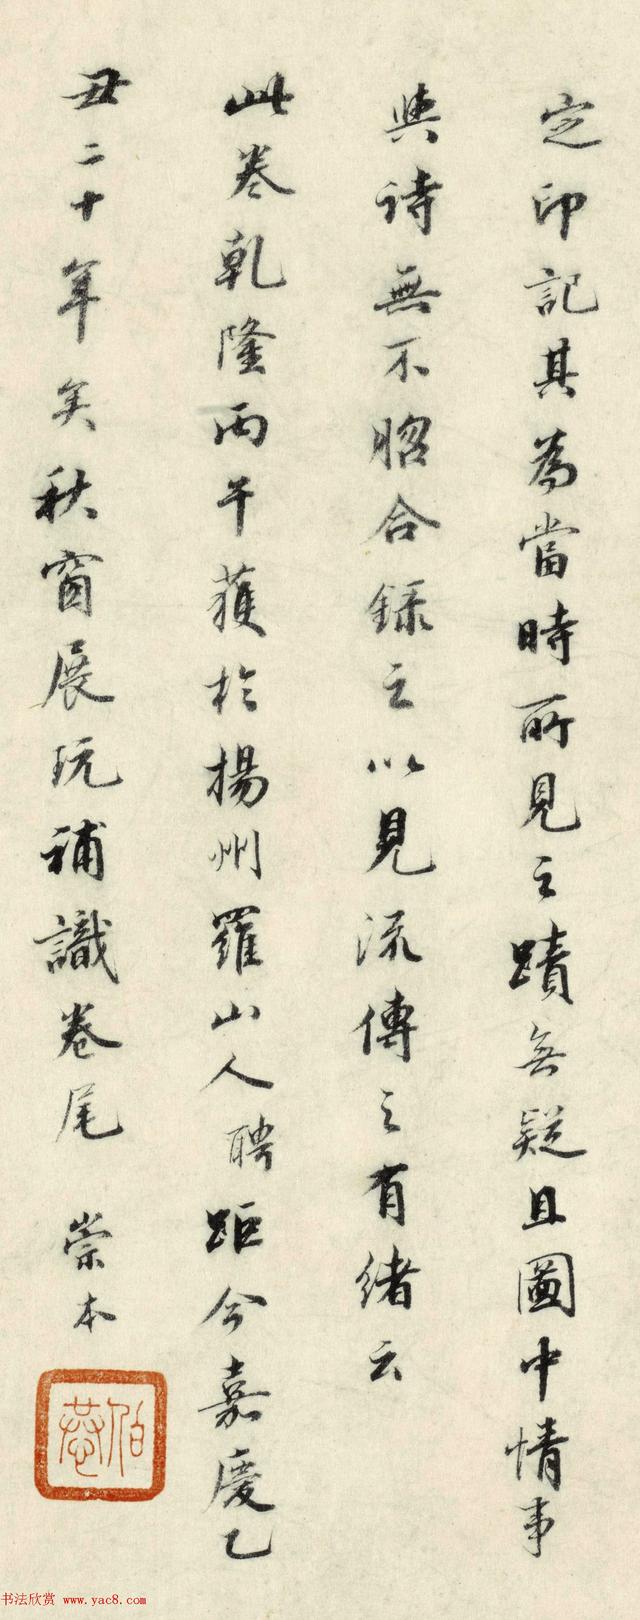 定印記其為當時所見之蹟無疑且圖中情事
與詩無不昭合録之以見流傳之有緒云
此卷乾隆丙午獲於揚州羅山人聘距今嘉慶乙
丑二十年矣秋窗展玩補識卷尾 崇本
伯恭
书法欣赏 www.yac8.com